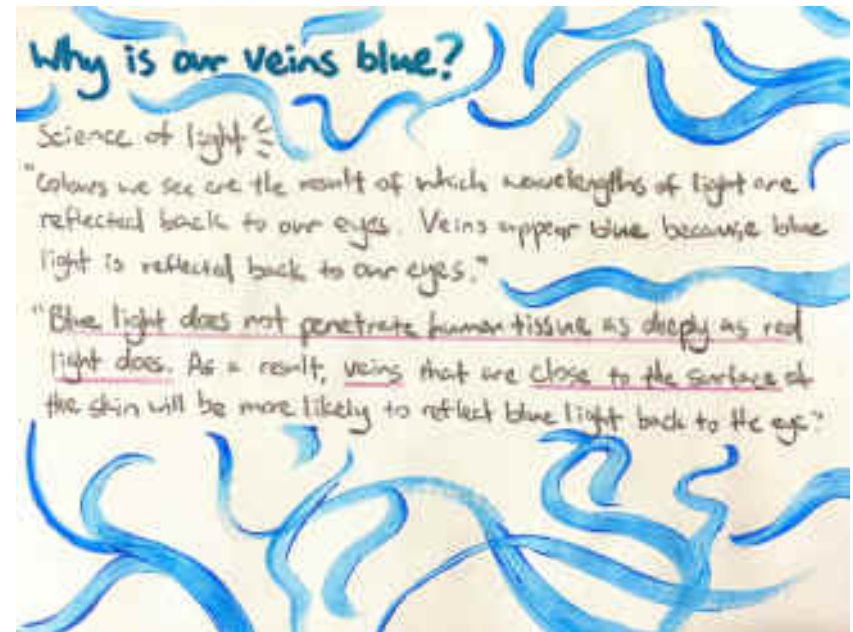 Why is our veins blue?
Science of light
"Colours we see are the result of which wavelengths of light are
reflected back to our eyes. Veins appear blue because blue
light is reflected back to our eyes."
"Blue light does not penetrate human tissue as deeply as red
light does. As a result, veins that are close to the surface of
the skin will be more likely to reflect blue light back to the eye"